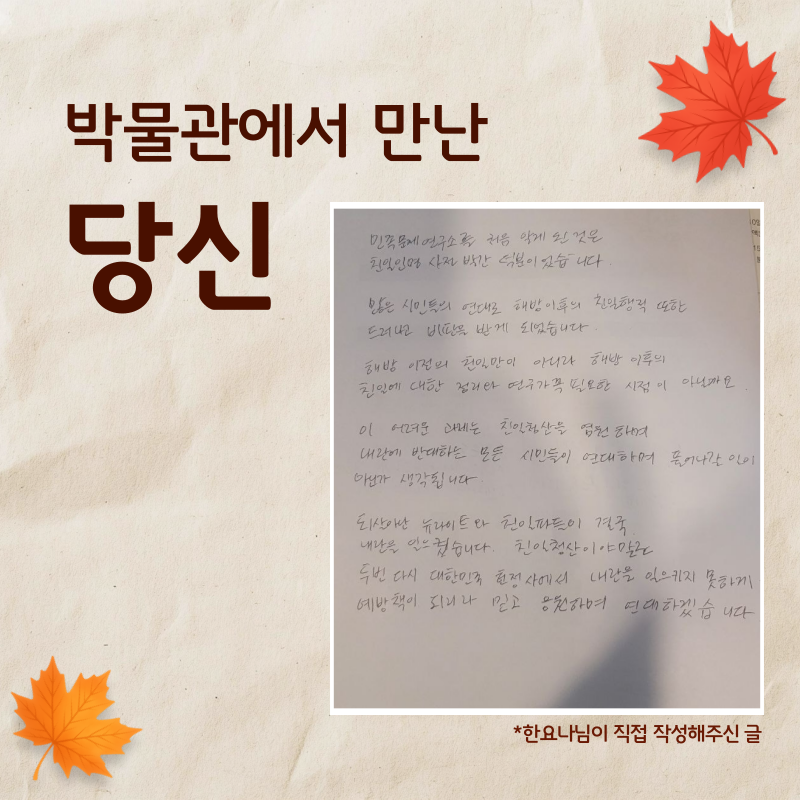 박물관에서 만난
당신
민족문제연구소를 처음 알게 된 것은
친일인명 사전 발간 덕분이었습니다.
많은 시민들의 연대로 해방이후의 친일행적 또한
드러나고 비판을 받게 되었습니다.
해방 이전의 친일만이 아니라 해방 이후의
친일에 대한 정리와 연구가 꼭 필요한 시점이 아닐까요.
이 어려운 과제는 친일청산을 염원하며
내란에 반대하는 모든 시민들이 연대하며 풀어나갈 일이
아닌가 생각됩니다.
되살아난 뉴라이트와 친일파들이 결국
내란을 일으켰습니다. 친일청산이야말로
두번 다시 대한민국 헌정사에서 내란을 일으키지 못하게
예방책이 되리라 믿고 응원하며 연대하겠습니다
*한요나님이 직접 작성해주신 글